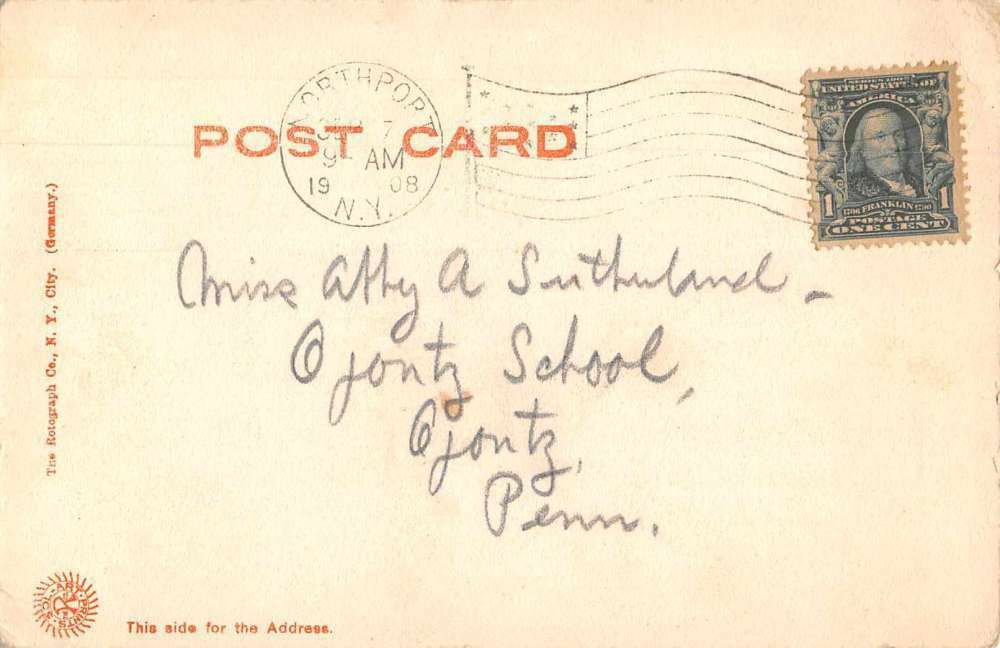 POST CARD
NORTHPORT
7
9 - AM
19 08
N.Y.
SERIES 1902
UNITED STATES OF
AMERICA
1 1706 FRANKLIN 1790 1
POSTAGE
ONE CENT
Miss Abby A Sutherland -
Ojontz School,
Ojontz,
Penn.
The Rotograph Co., N. Y., City. (Germany.)
This side for the Address.